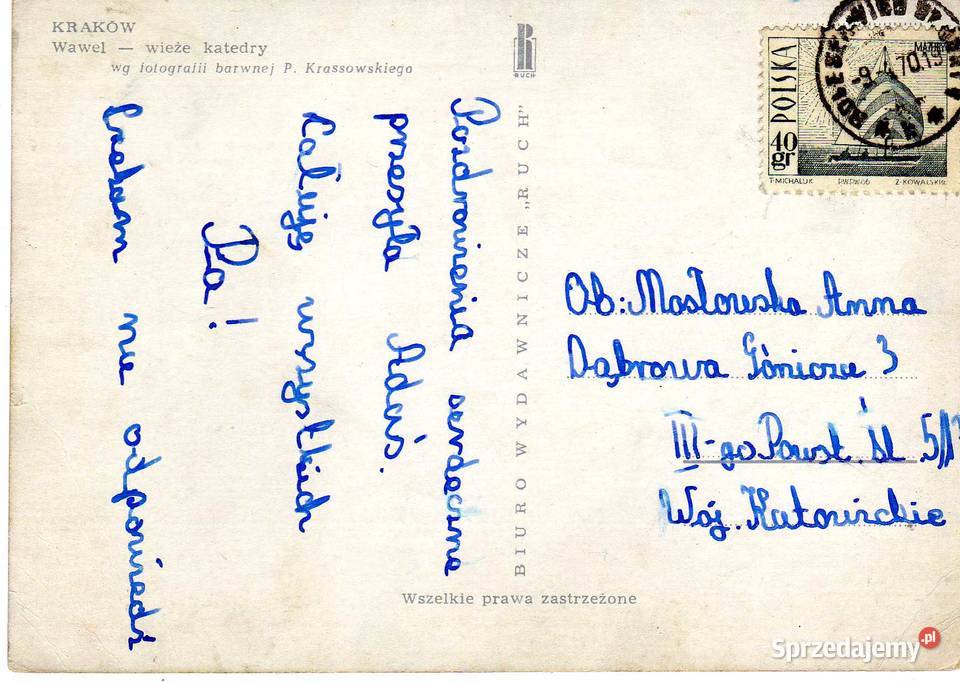 KRAKÓW
Wawel — wieże katedry
wg fotografii barwnej P. Krassowskiego
RUCH
BIURO WYDAWNICZE „RUCH"
Wszelkie prawa zastrzeżone
POLSKA
40 gr
T-MICHALUK PWPW-66 Z-KOWALSKI
70.15
Pozdrowienia serdeczne
przesyła Adaś.
Całuję wszystkich
Pa!
Czekam na odpowiedź
Ob: Mosłowska Anna
Dąbrowa Górnicza 3
III-go Powst. Śl. 5/
Woj. Katowickie
Sprzedajemy.pl